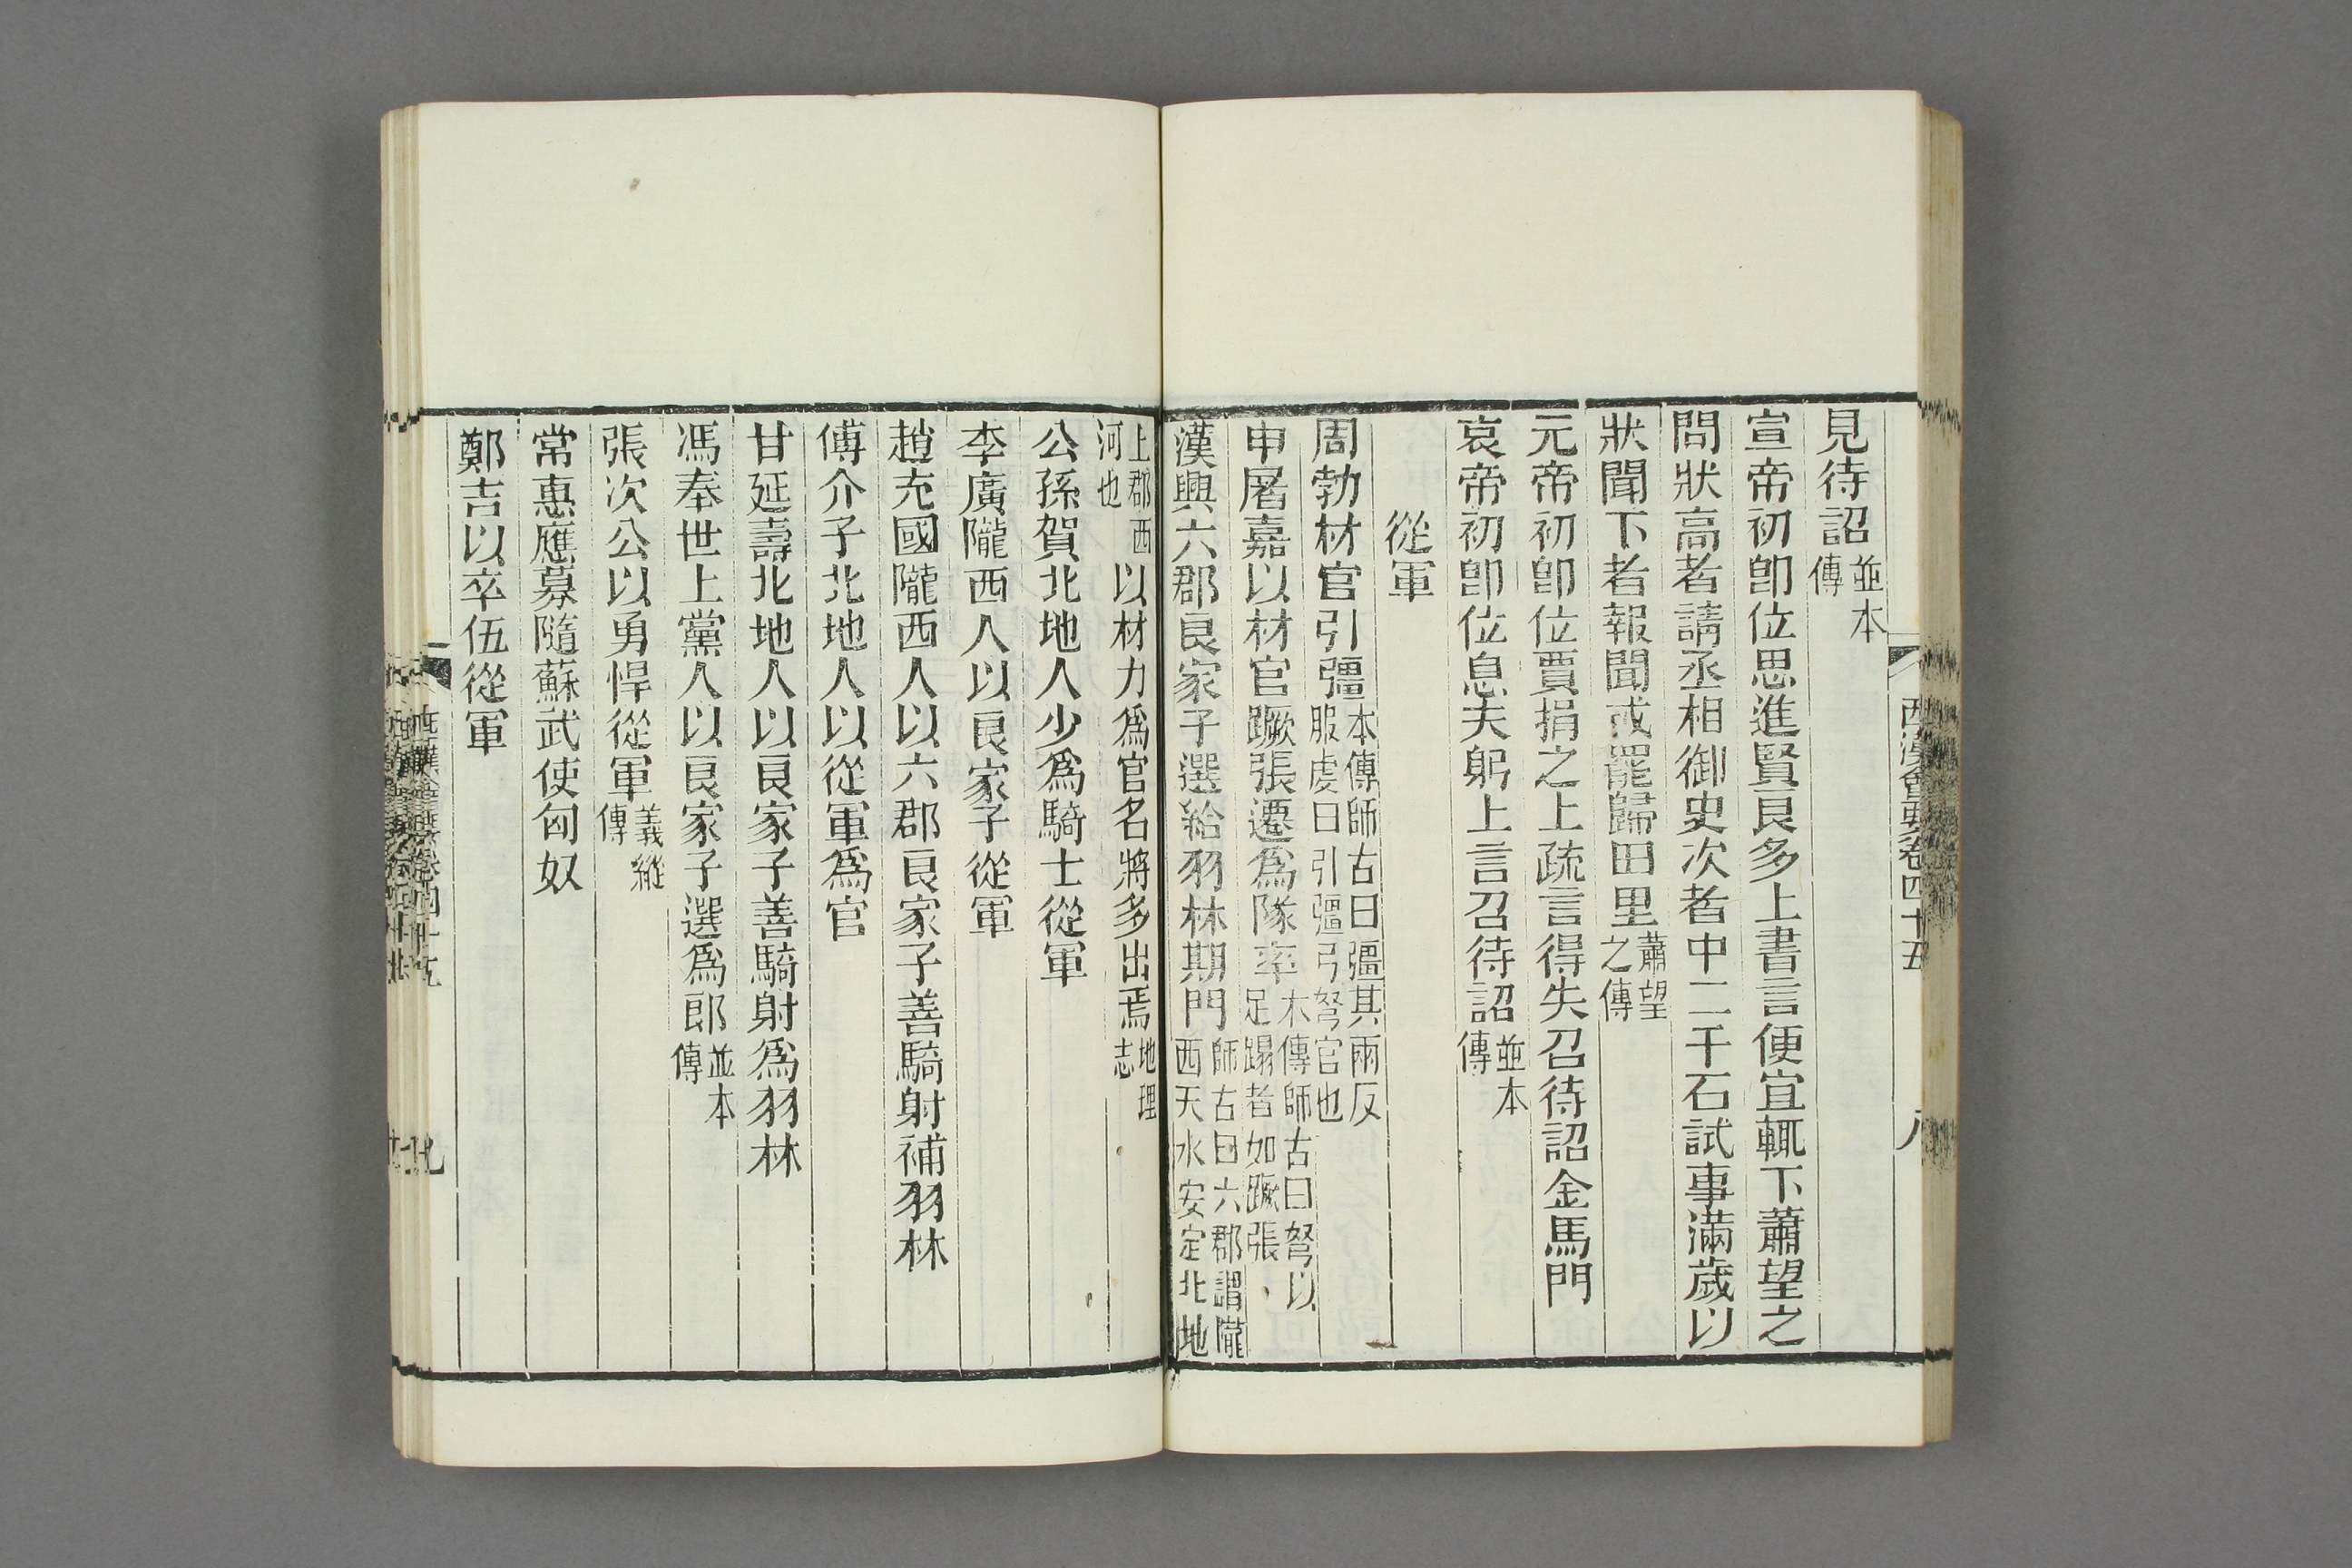 西漢會要卷四十五
八
見待詔並本傳
宣帝初卽位思進賢良多上書言便宜輒下蕭望之
問狀高者請丞相御史次者中二千石試事滿歲以
狀聞下者報聞或罷歸田里蕭望之傳
元帝初卽位賈捐之上疏言得失召待詔金馬門
哀帝初卽位息夫躬上言召待詔並本傳
從軍
周勃材官引彊本傳師古曰彊其兩反服虔曰引彊弓弩官也
申屠嘉以材官蹶張遷爲隊率本傳師古曰弩以足蹋者如蹶張
漢興六郡良家子選給羽林期門師古曰六郡謂隴西天水安定北地
上郡西河也以材力爲官名將多出焉地理志
公孫賀北地人少爲騎士從軍
李廣隴西人以良家子從軍
趙充國隴西人以六郡良家子善騎射補羽林
傅介子北地人以從軍爲官
甘延壽北地人以良家子善騎射爲羽林
馮奉世上黨人以良家子選爲郎並本傳
張次公以勇悍從軍義縱傳
常惠應募隨蘇武使匈奴
鄭吉以卒伍從軍